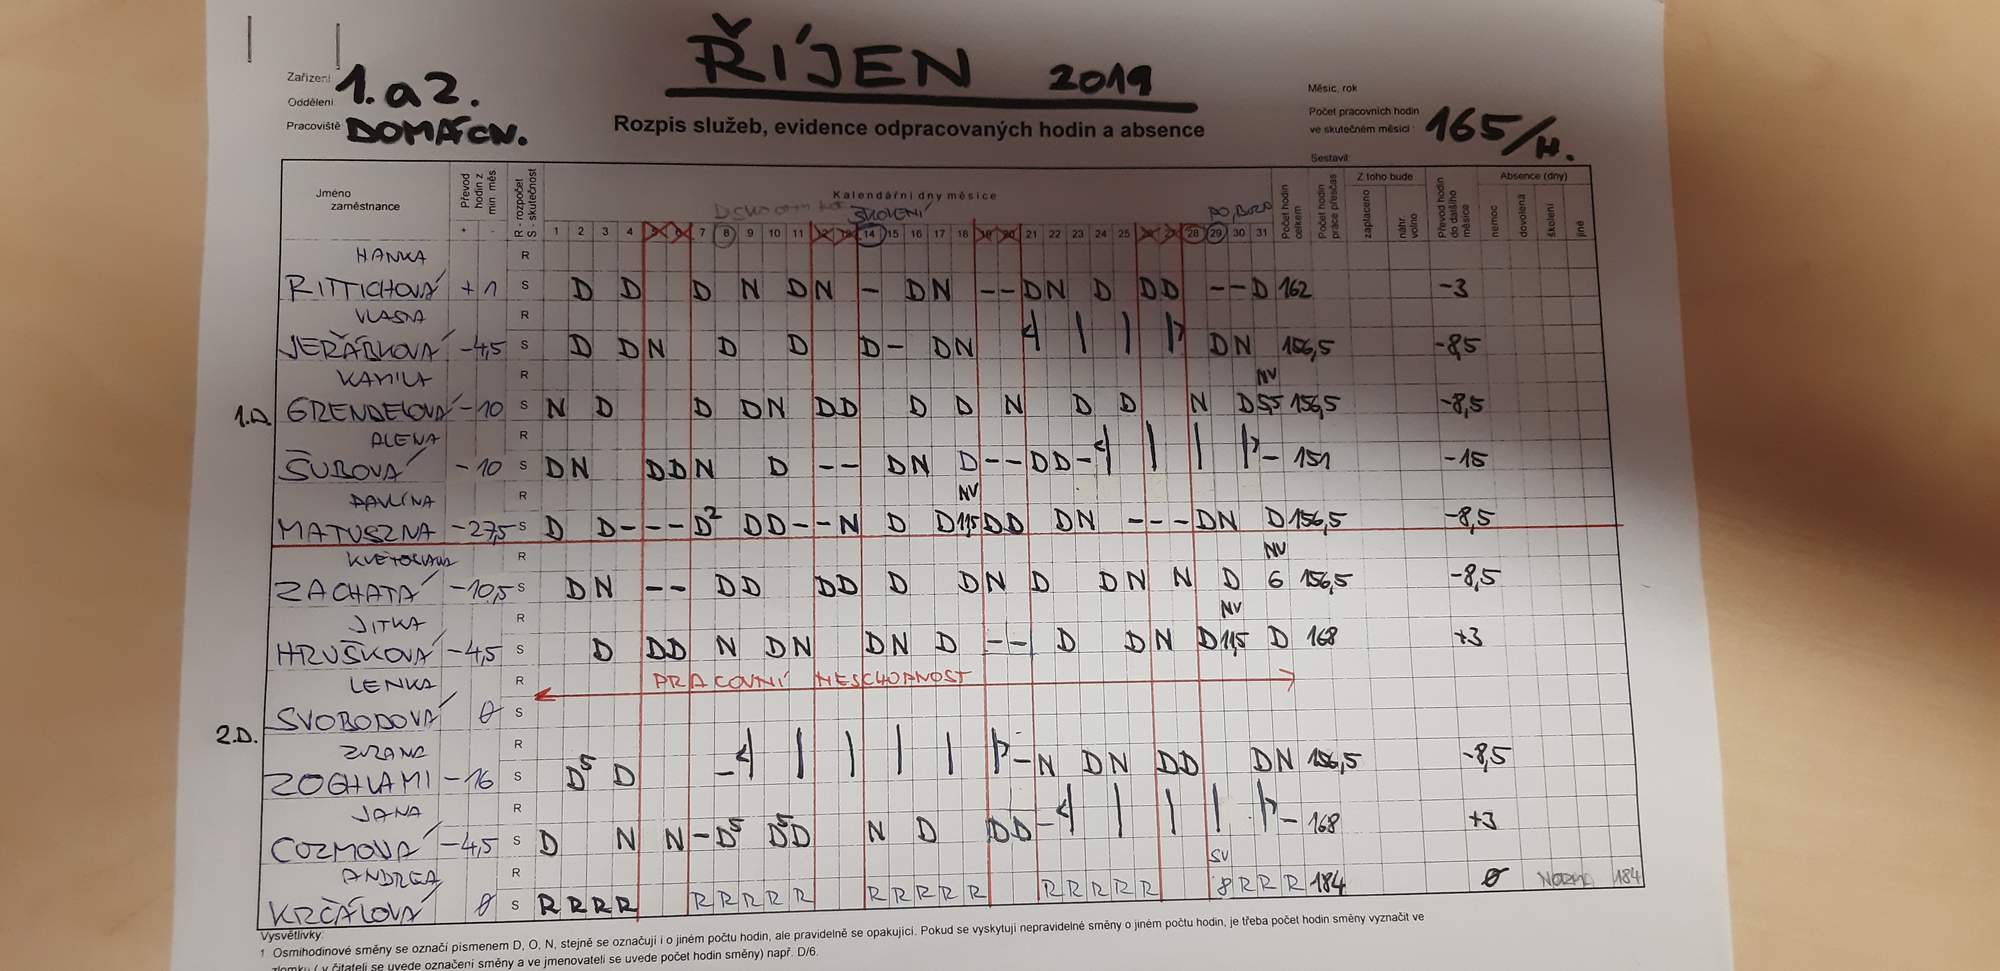 ŘÍJEN 2019
Zařízení
Oddělení
Pracoviště
1. a 2.
DOMÁCN.
Rozpis služeb, evidence odpracovaných hodin a absence
Měsíc, rok
Počet pracovních hodin
ve skutečném měsíci
165/H.
Sestavil:
Jméno
zaměstnance
Převod hodin z min měs
+ -
R - rozpočet
S - skutečnost
Kalendářní dny měsíce
ŠKOLENÍ
PO, BOZO
1 2 3 4 5 6 7 8 9 10 11 12 13 14 15 16 17 18 19 20 21 22 23 24 25 26 27 28 29 30 31
Počet hodin celkem
Počet hodin práce přesčas
Z toho bude
zaplaceno
náhr volno
Převod hodin do dalšího měsíce
Absence (dny)
nemoc
dovolená
školení
jiné
HANKA R
RITTICHOVÁ +1 S D D D N D N - D N - - D N D D D - - D 162 -3
VLASNA R
JEŘÁBKOVÁ -4,5 S D D N D D D - D N D N 156,5 -8,5
KAMILA R NV
1.D. GRENDELOVÁ -10 S N D D D N D D D D N D D N D 5,5 156,5 -8,5
ALENA R
ŠUBOVÁ -10 S D N D D N D - - D N D - - D D - - 151 -15
PAVLÍNA R NV
MATUSZNA -27,5 S D D - - - D² D D - - N D D 11,5 D D D N - - - D N D 156,5 -8,5
R NV
ZACHATÁ -10,5 S D N - - D D D D D D N D D N N D 6 156,5 -8,5
JITKA R NV
HRUŠKOVÁ -4,5 S D D D N D N D N D - - D D N D 11,5 D 168 +3
LENKA R PRACOVNÍ NESCHOPNOST
SVOBODOVÁ 0 S
2.D.
ZUZANA R
ZOGHLAMI -16 S D⁵ D - - N D N D D D N 156,5 -8,5
JANA R
COZMOVÁ -4,5 S D N N - D⁵ D⁵ D N D D D - - 168 +3
ANDREA R SV
KRČÁLOVÁ 0 S R R R R R R R R R R R R R R R R R R R 8 R R R 184 0 NORMA 184
Vysvětlivky:
1 Osmihodinové směny se označí písmenem D, O, N, stejně se označují i o jiném počtu hodin, ale pravidelně se opakující. Pokud se vyskytují nepravidelné směny o jiném počtu hodin, je třeba počet hodin směny vyznačit ve
zlomku ( v čitateli se uvede označení směny a ve jmenovateli se uvede počet hodin směny) např. D/6.